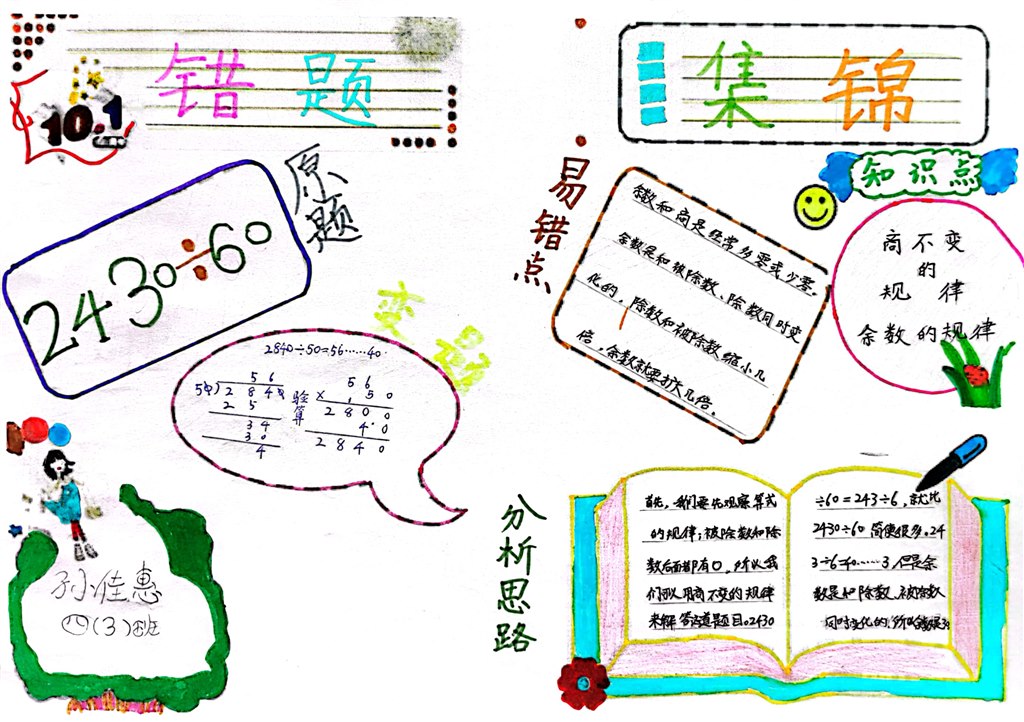 错题
集锦
10.1
原题
2430÷60
易错点
余数和商是经常多零或少零。
余数是和被除数、除数同时变
化的，除数和被除数缩小几
倍，余数就要扩大几倍。
知识点
商不变
的
规律
余数的规律
变题
2840÷50=56……40
56
50)2840
25
34
30
4
验算
56
× 50
2800
40
2840
分析思路
首先，我们要先观察算式
的规律，被除数和除
数后面都有0，所以我
们可以用商不变的规律
来解答这道题目。2430
÷60=243÷6，就比
2430÷60简便很多。24
3÷6=40……3但是余
数是和除数、被除数
同时变化的，所以余数是30
孙佳惠
四(3)班